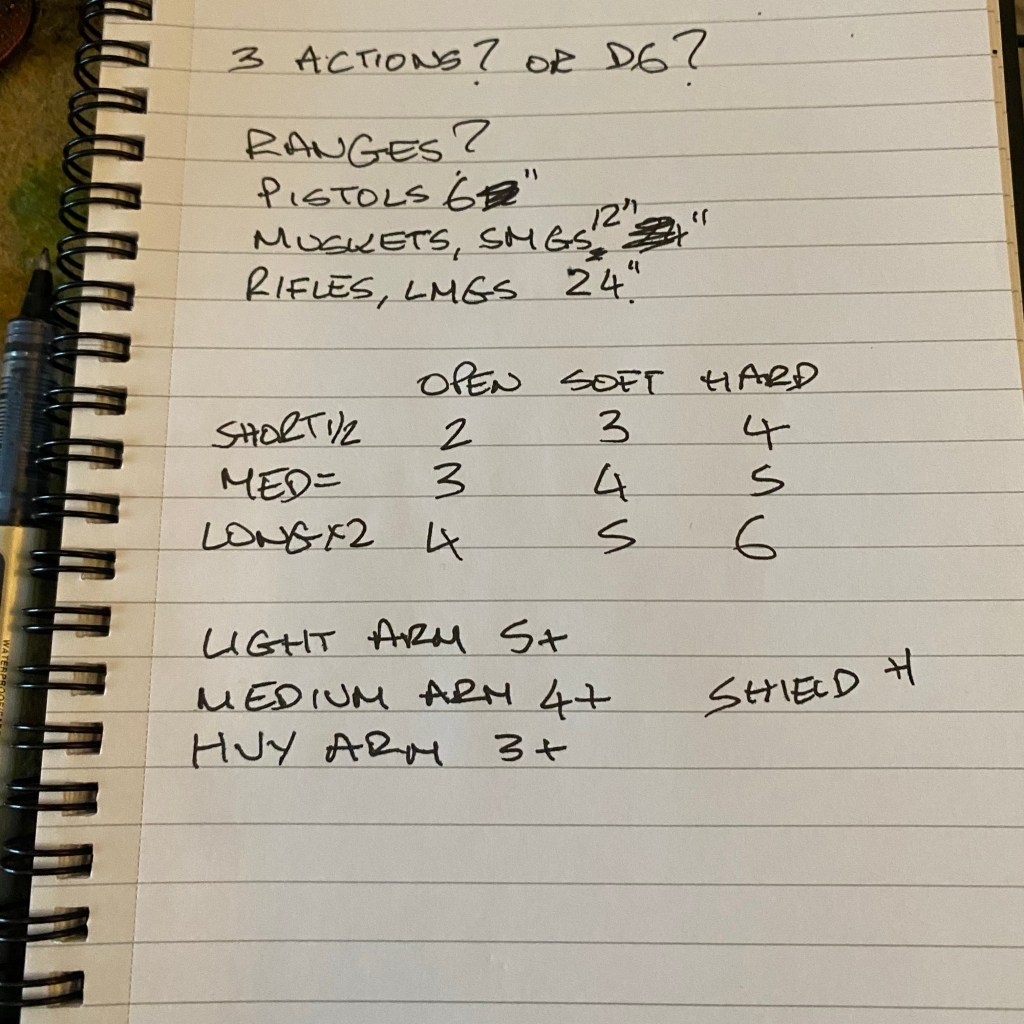 3 ACTIONS? OR D6?
RANGES?
PISTOLS 6"
MUSKETS, SMGS, 12" "
RIFLES, LMGS 24"
OPEN SOFT HARD
SHORT 1/2 2 3 4
MED = 3 4 5
LONG x2 4 5 6
LIGHT ARM 5+
MEDIUM ARM 4+ SHIELD +1
HVY ARM 3+
WATERPROOF